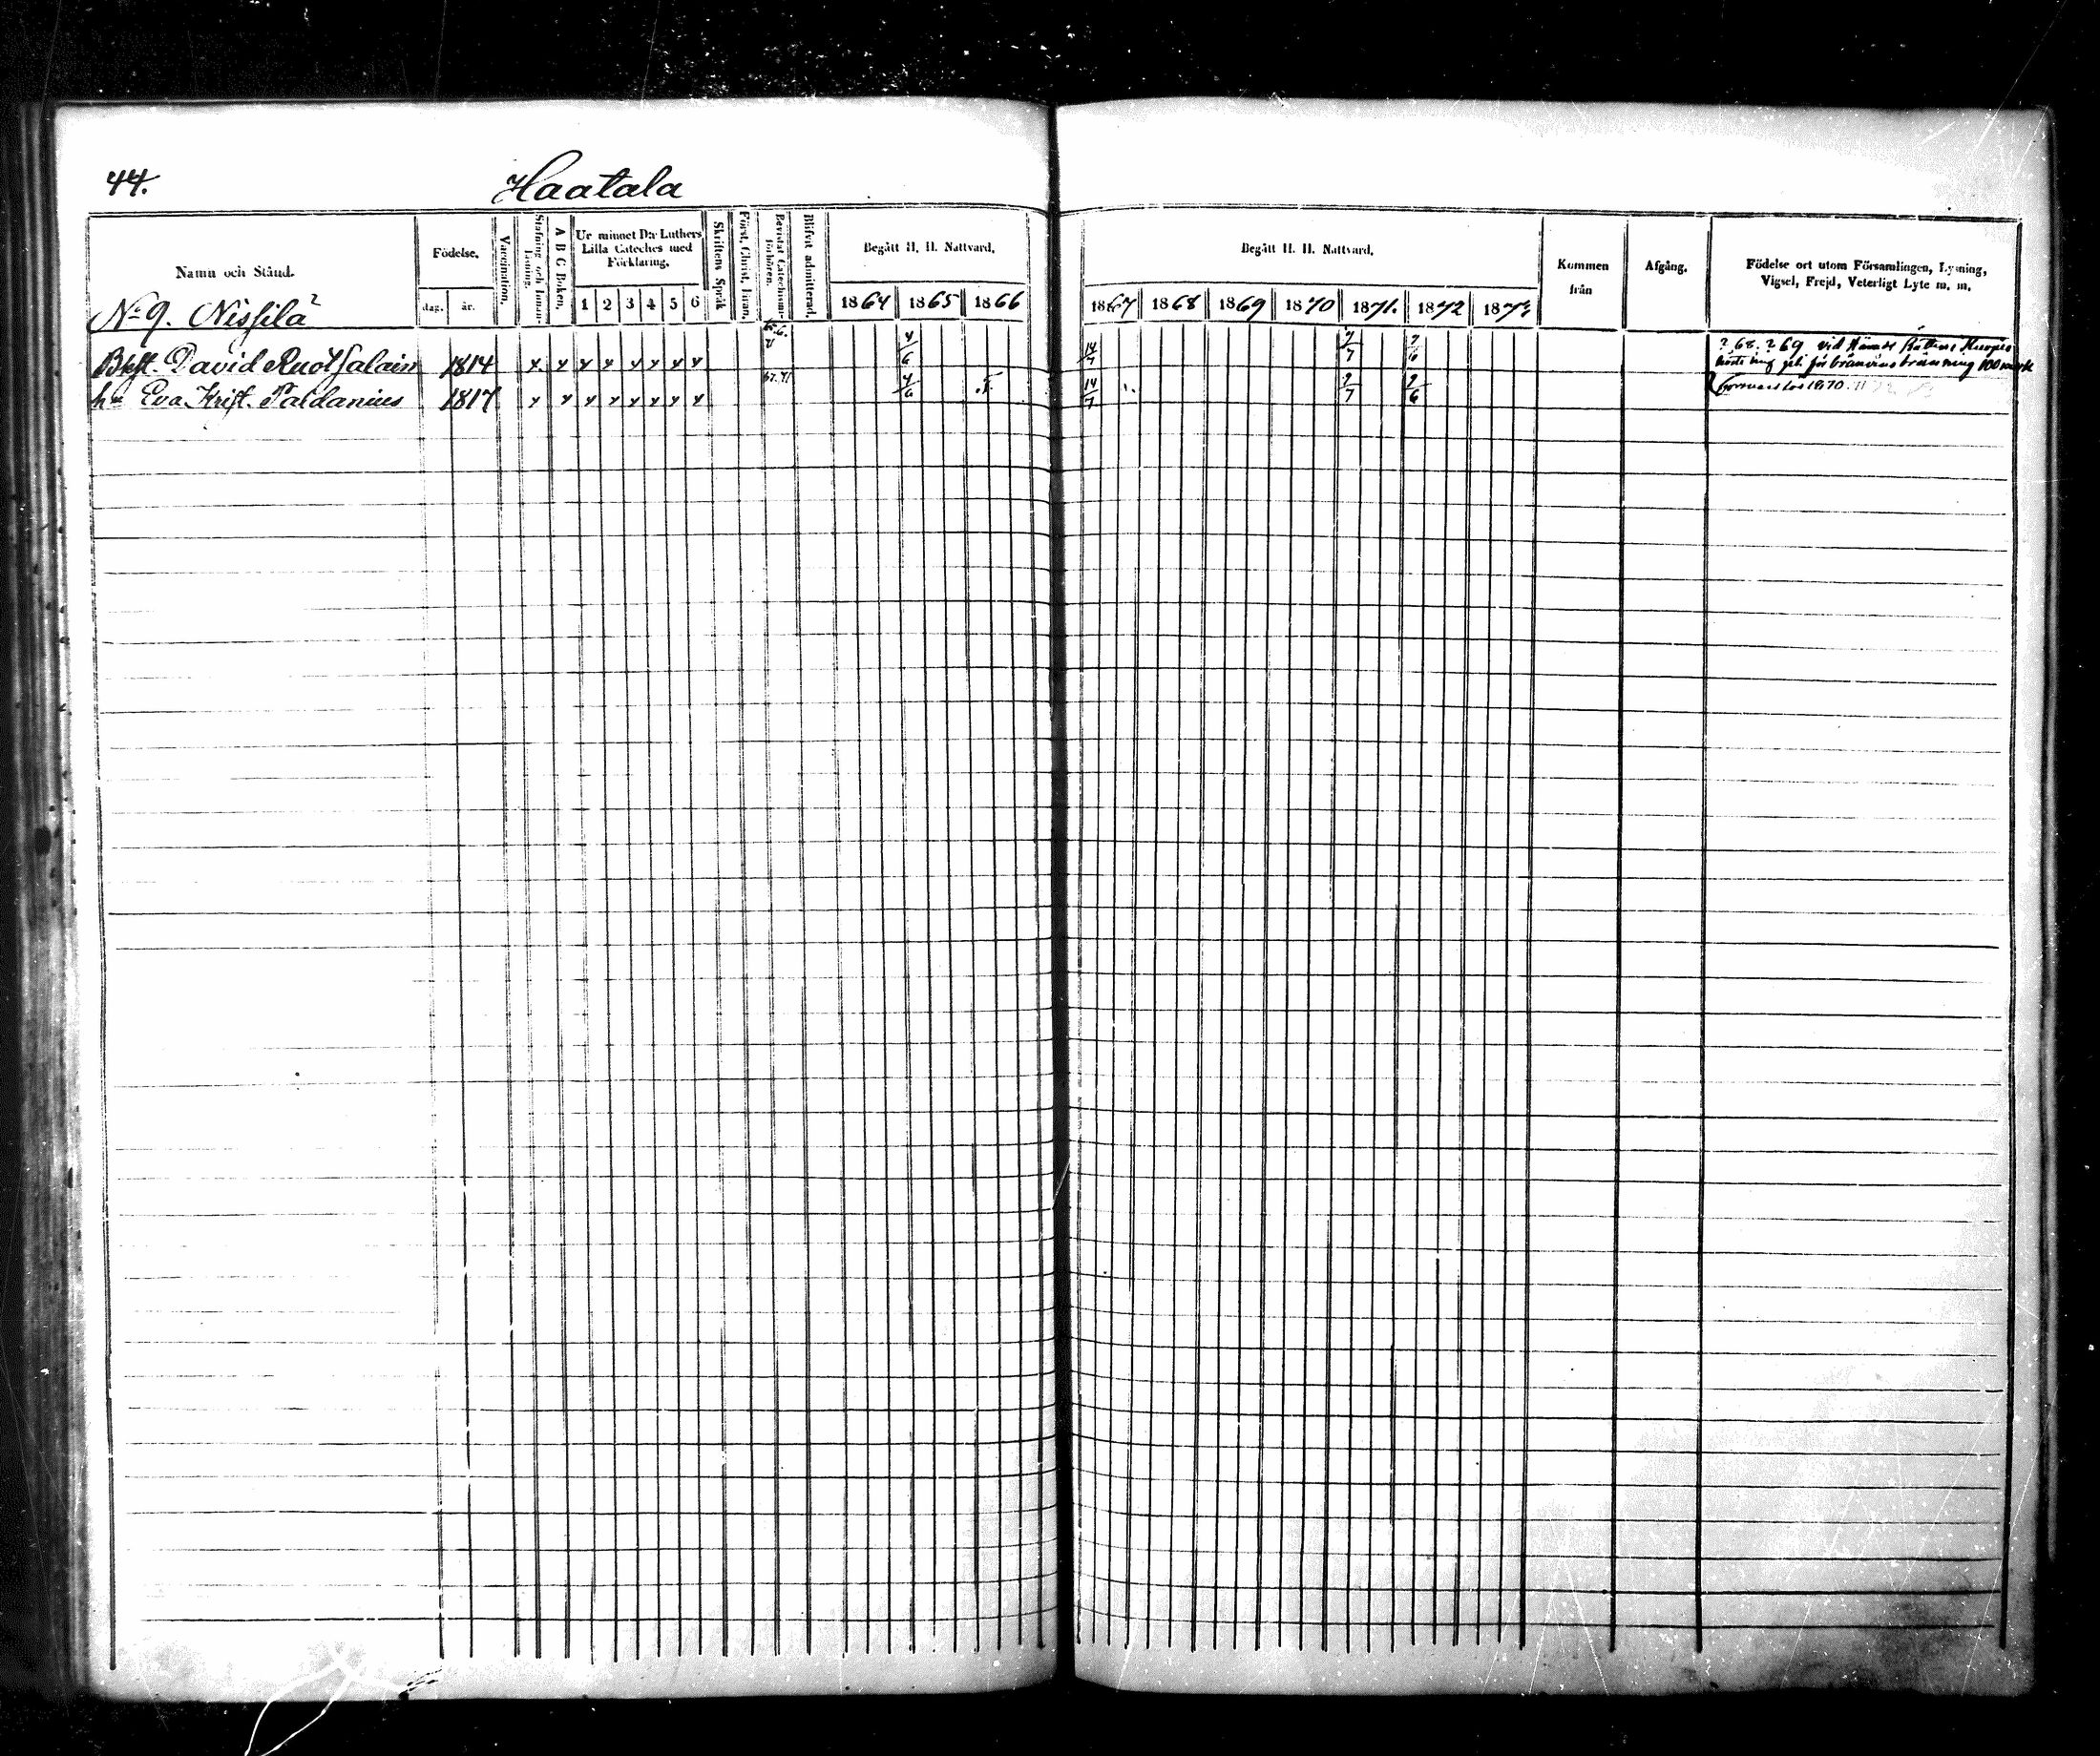 44.
Haatala
Namn och Stånd.
Födelse.
dag. år.
Vaccination.
Stafning och Innanläsning.
A B C Boken.
Ur minnet D:r Luthers Lilla Cateches med Förklaring.
1 2 3 4 5 6
Skriftens Språk
Först. Christ. Läran.
Bevistat Catechumförhören.
Blifvit admitterad.
Begått H. H. Nattvard.
1864 1865 1866
Begått H. H. Nattvard.
1867 1868 1869 1870 1871. 1872 1873
Kommen från
Afgång.
Födelse ort utom Församlingen, Lysning, Vigsel, Frejd, Veterligt Lyte m. m.
N:o 9. Nissilä
David Ruotsalain 1814 x x x x x x x x 4/6 14/7 9/7 9/6
? 68. ? 69 vid
för bränvins bränning 100 mark
h:u Eva Krist. Paldanius 1817 x x x x x x x x 67. 71 4/6 14/7 9/7 9/6
1870.